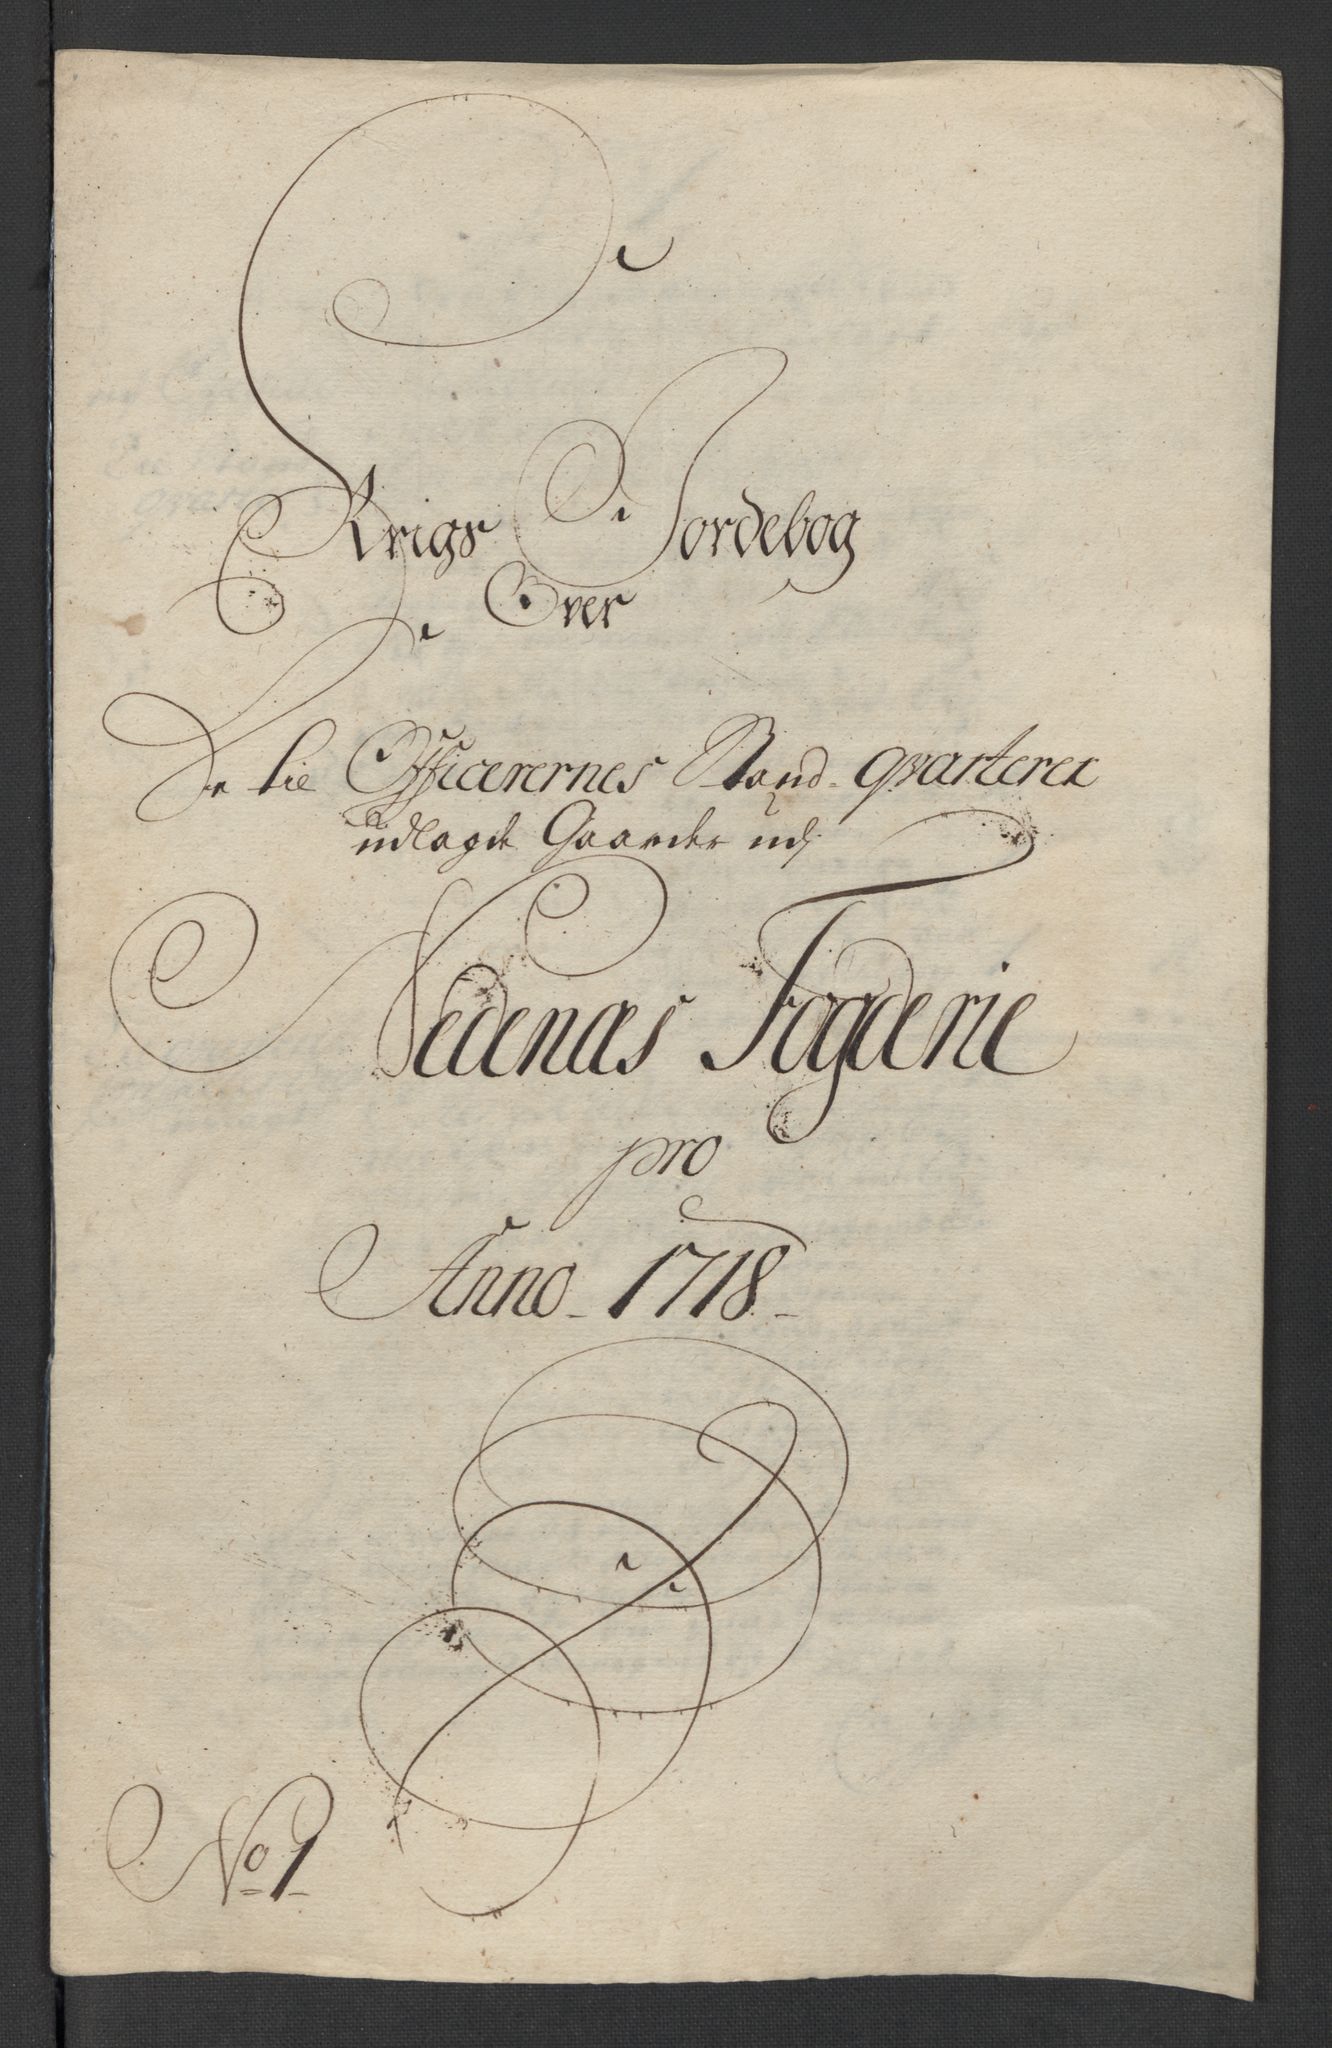 Krigs Jordebog
Over
De til Officerernes Stand-qvarterer
udlagde Gaarder udj
Nedenæs Fogderie
pro
Anno 1718
No 1